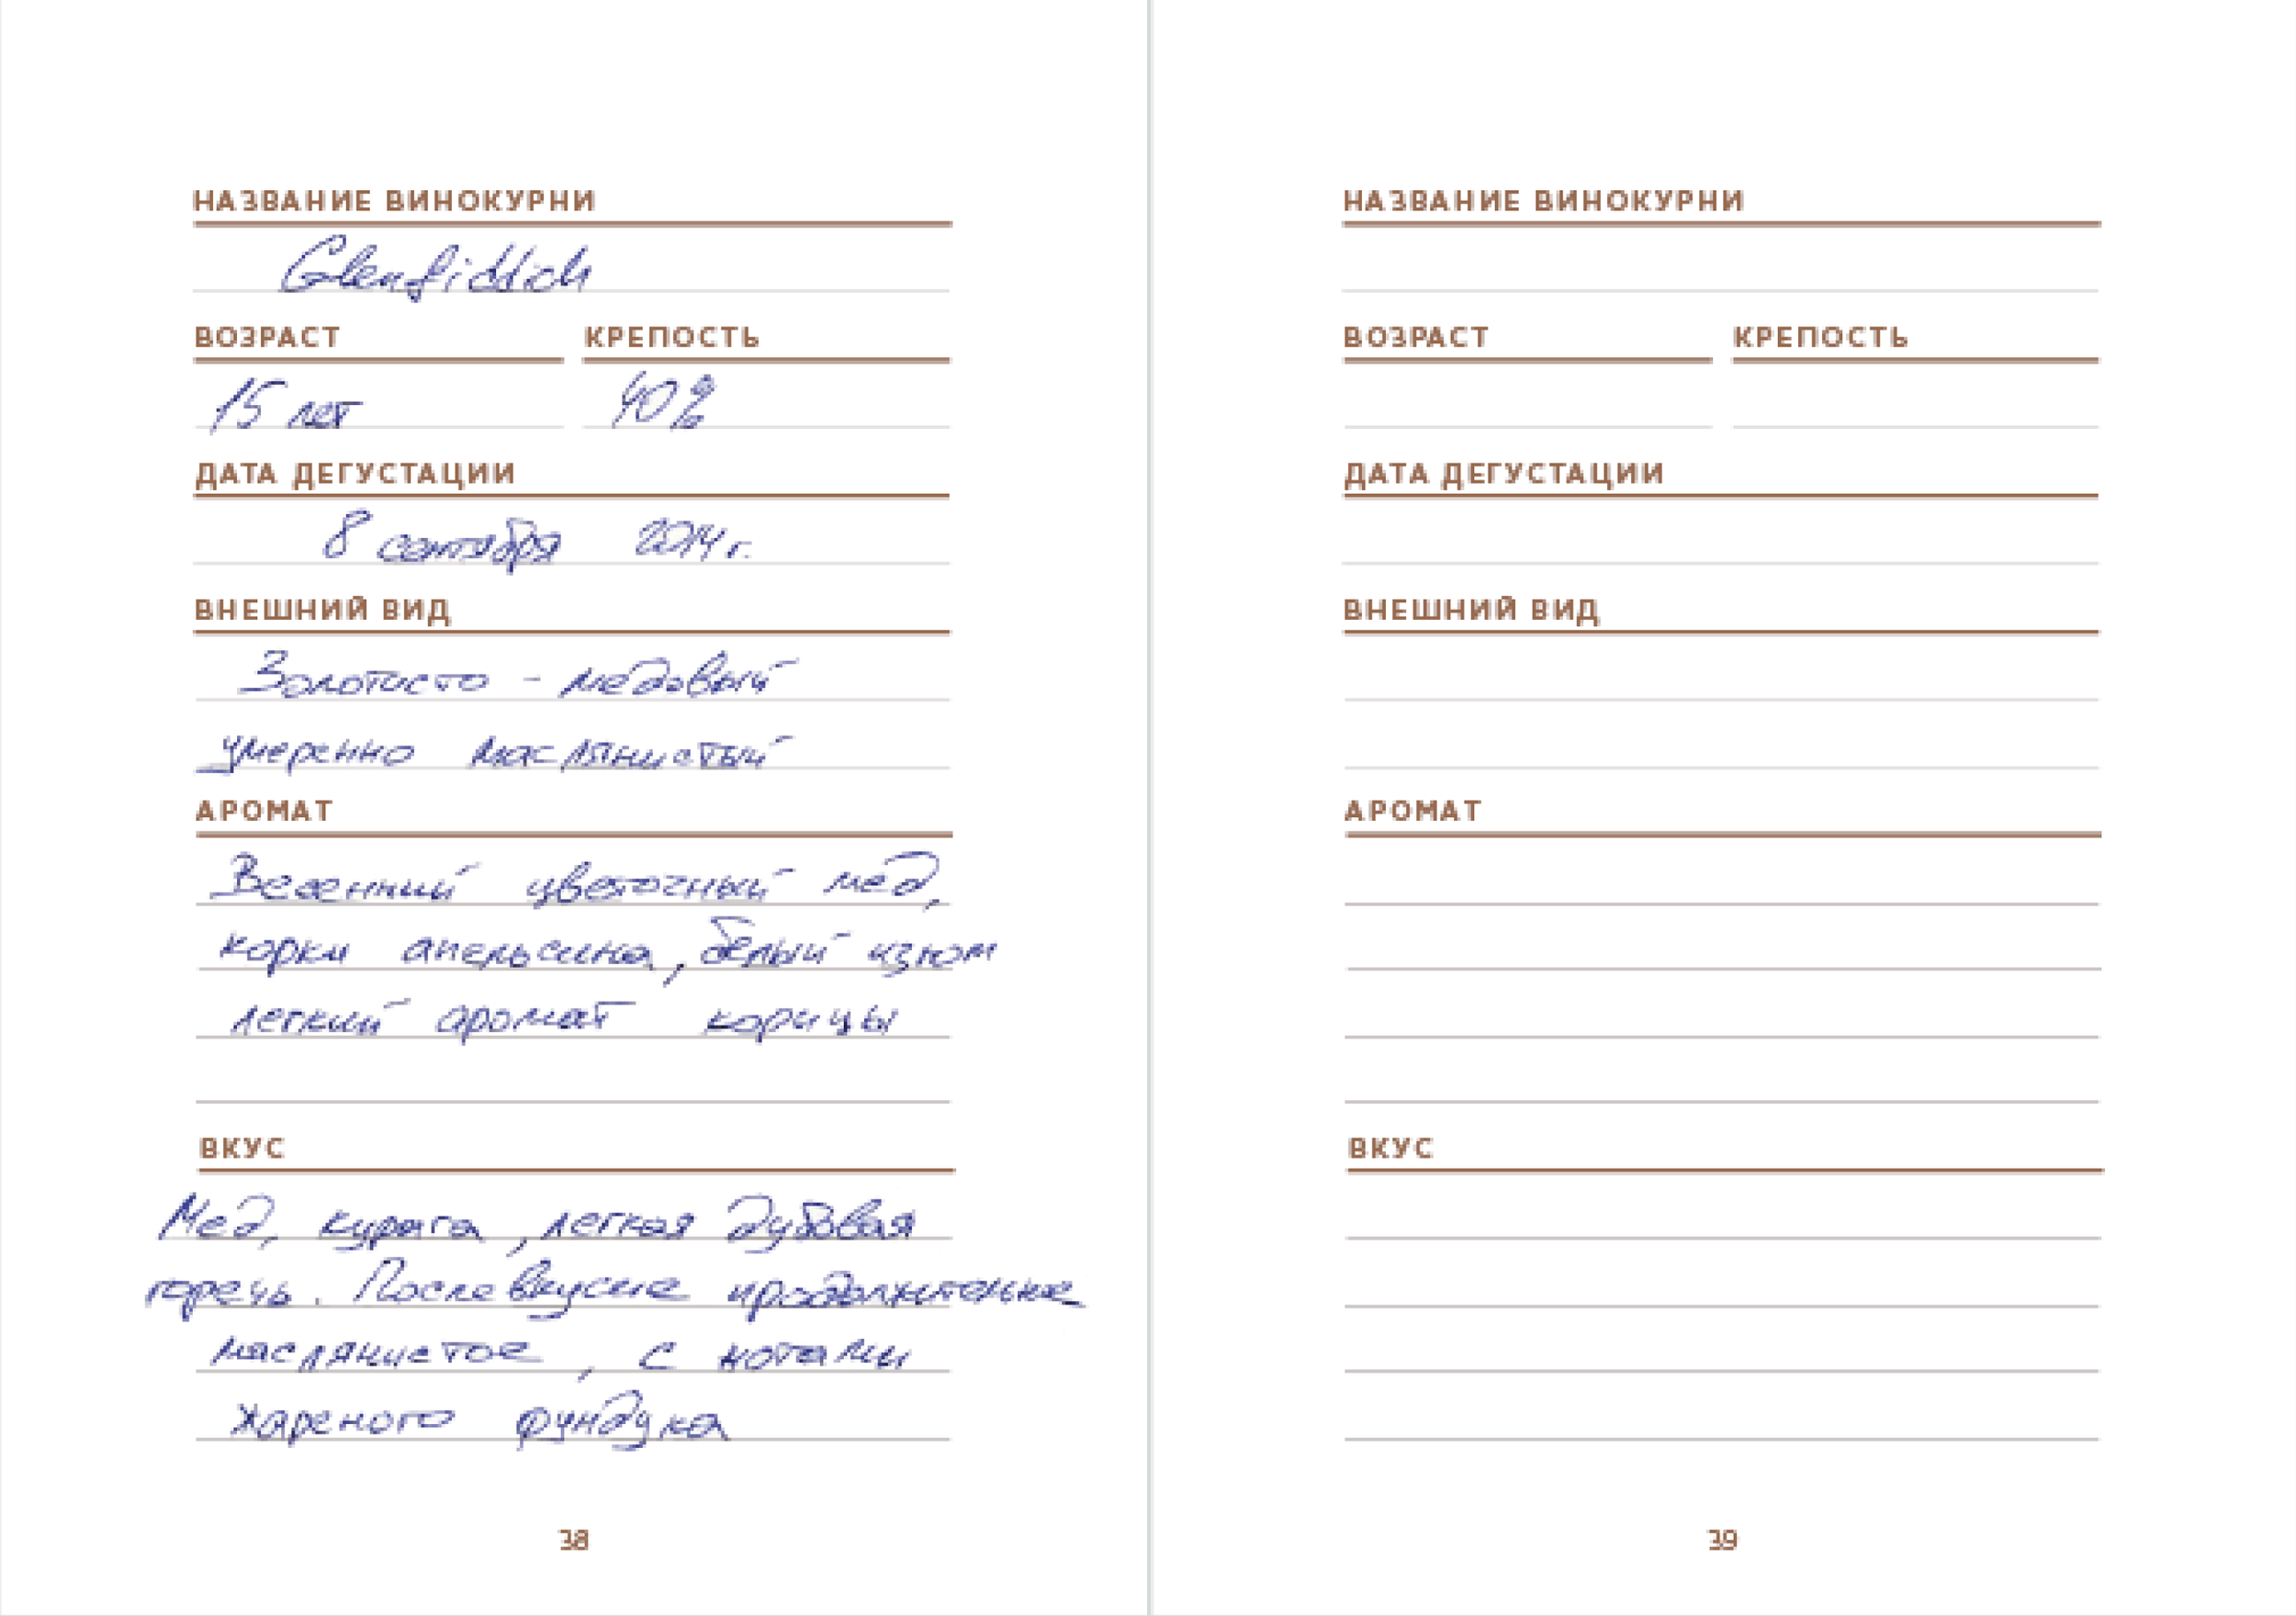 НАЗВАНИЕ ВИНОКУРНИ
Glenfiddich
ВОЗРАСТ КРЕПОСТЬ
15 лет 40%
ДАТА ДЕГУСТАЦИИ
8 сентября 2014 г.
ВНЕШНИЙ ВИД
Золотисто - медовый
умеренно маслянистый
АРОМАТ
Весенний цветочный мёд,
корки апельсина, белый изюм
легкий аромат корицы
ВКУС
Мед, курага, легкая дубовая
горечь. Послевкусие продолжительное
маслянистое, с нотами
жареного фундука
38
НАЗВАНИЕ ВИНОКУРНИ
ВОЗРАСТ КРЕПОСТЬ
ДАТА ДЕГУСТАЦИИ
ВНЕШНИЙ ВИД
АРОМАТ
ВКУС
39